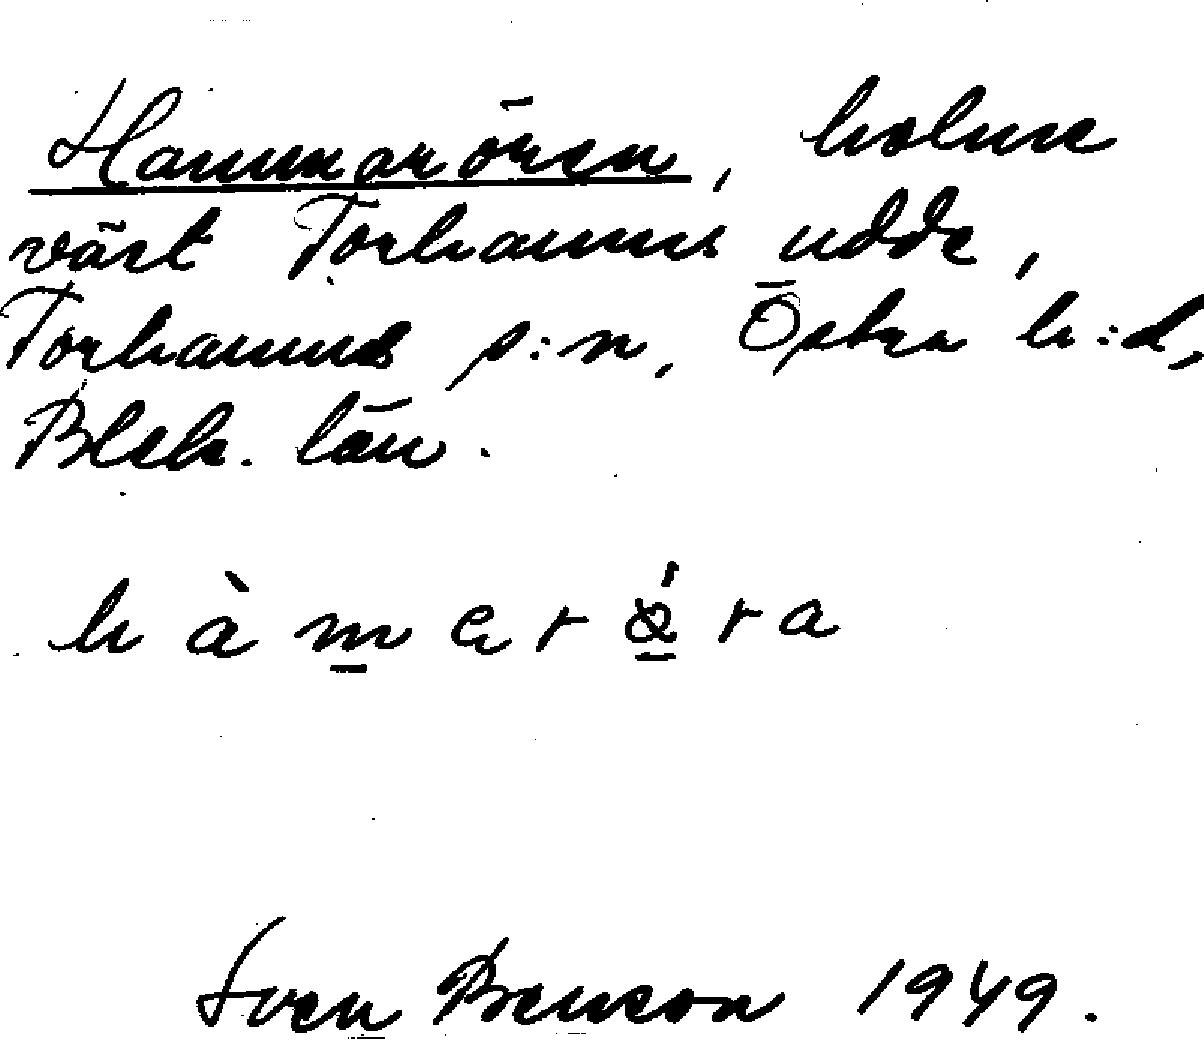 Hammarören, holme
väst Torhamns udde,
Torhamns s:n, Östra h:d,
Blek. län.
Sven Benson 1949.